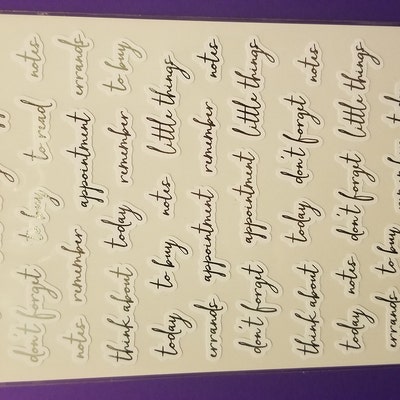 don't forget to buy to read notes
notes remember appointment errands
think about today remember to buy
today to buy notes little things
errands appointment remember notes
don't forget appointment little things
think about today don't forget notes
today notes don't forget little things
errands to buy